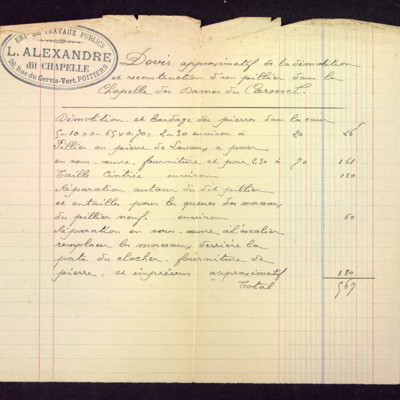 ENT. DE TRAVAUX PUBLICS
L. ALEXANDRE
dit CHAPELLE
26, Rue du Gervis-Vert. POITIERS
Devis approximatif de la démolition
et reconstruction d'un pillier dans la
Chapelle des Dames du Carmel.
Démolition et bardage des pierres dans la cour
5-10 x 0-65 x 0.70 = 2-30 environ à 20 46
Pillier en pierre de Lavoux à poser
en sous-œuvre, fourniture et pose 2.30 à 70 161
Taille Cintrée environ 120
Réparation autour du dit pillier
et entailles pour les queues des morceaux
du pillier neuf. environ 60
Réparation en sous-œuvre à l'escalier
remplacer les morceaux derrière la
porte du clocher. fourniture de
pierre, et imprévus approximatif 180
Total 567